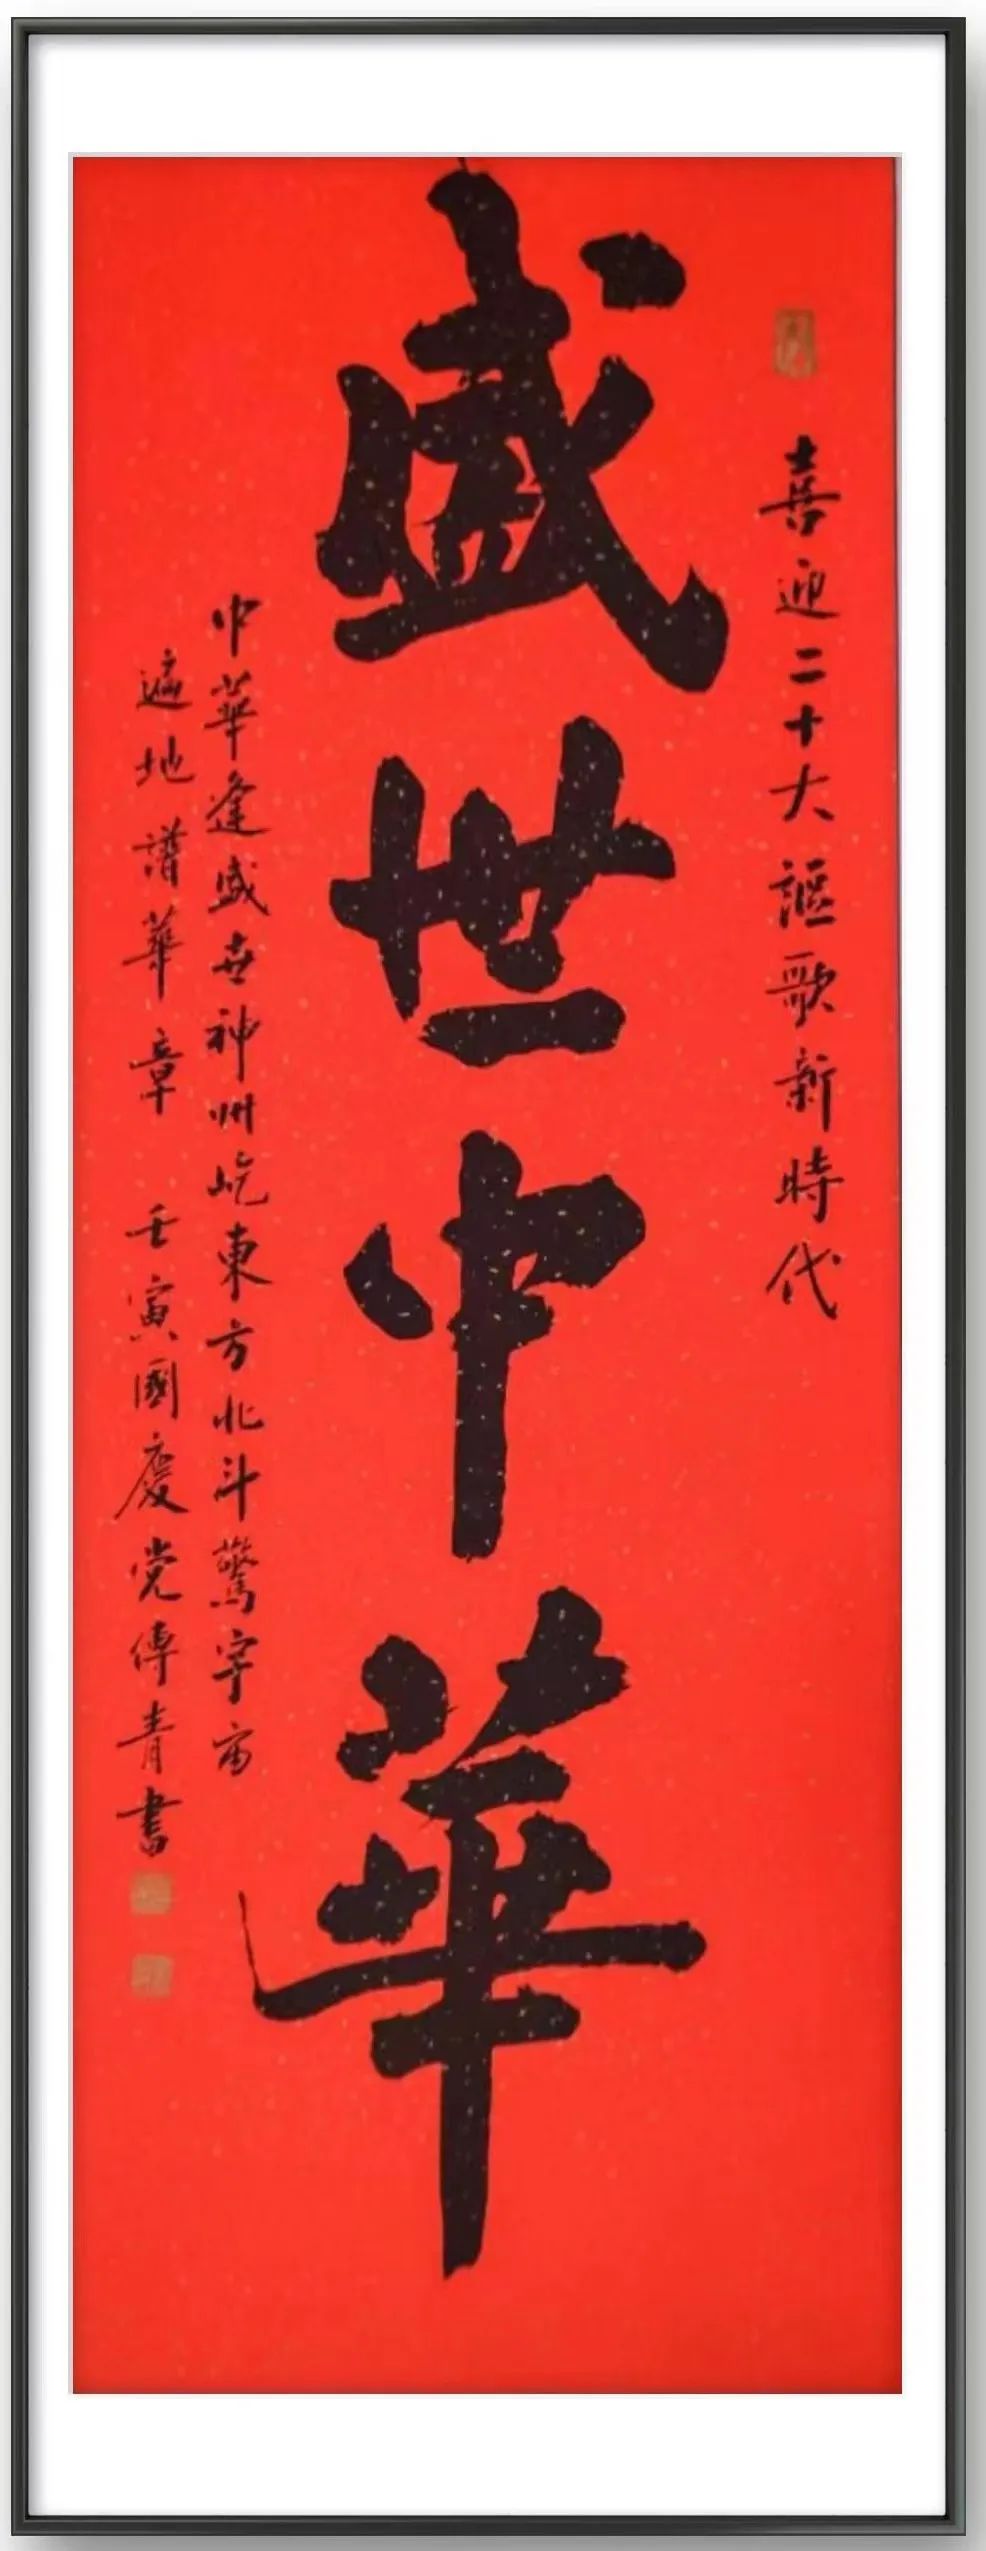 喜迎二十大謳歌新時代
盛世中華
中華逢盛世神州屹東方北斗驚宇宙
遍地譜華章 壬寅國慶党傳青書